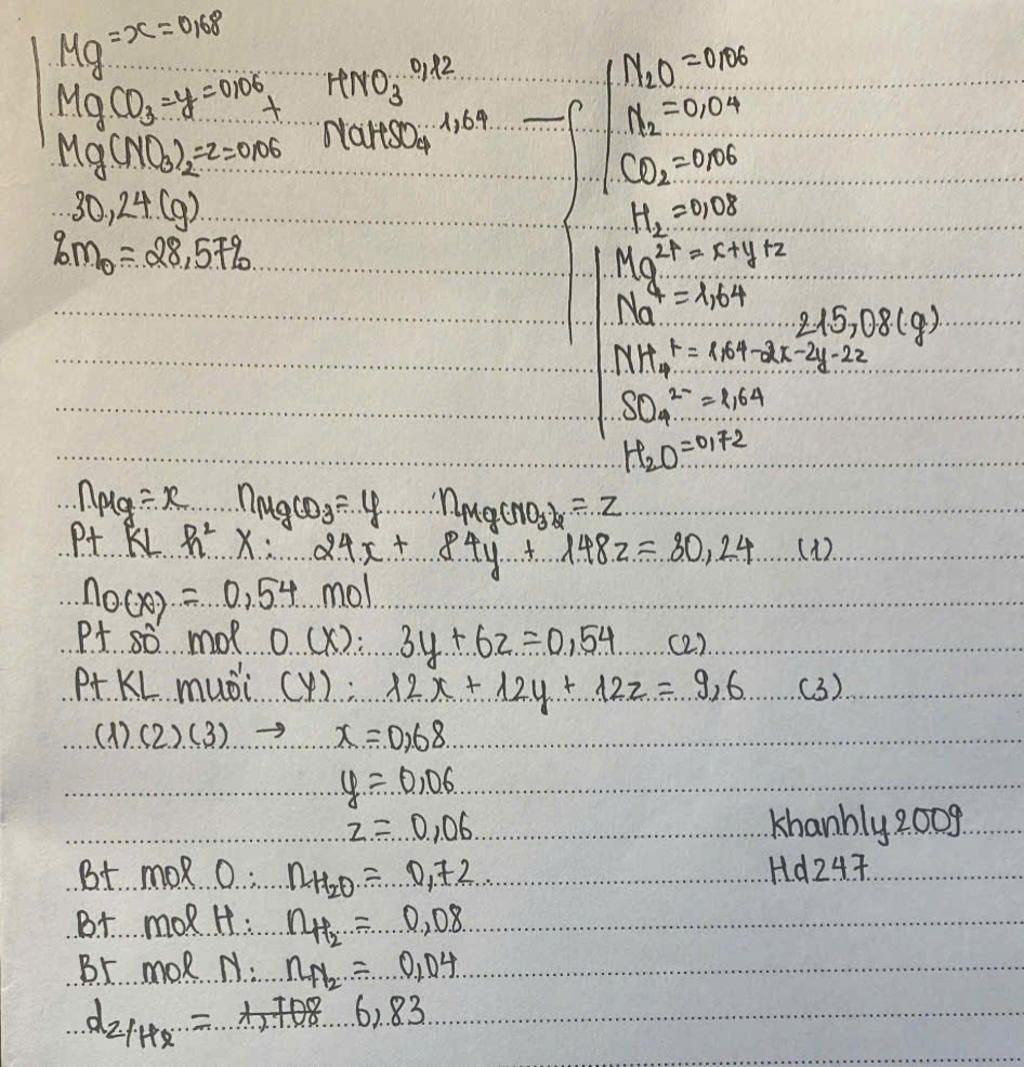 Mg = x = 0,68
MgCO3 = y = 0,06 +
Mg(NO3)2 = z = 0,06
30,24 (g)
%mO = 28,57%
HNO3 0,12
NaHSO4 1,64
N2O = 0,06
N2 = 0,04
CO2 = 0,06
H2 = 0,08
Mg2+ = x+y+z
Na+ = 1,64
215,08 (g)
NH4+ = 1,64-2x-2y-2z
SO4 2- = 1,64
H2O = 0,72
nMg = x nMgCO3 = y nMg(NO3)2 = z
Pt KL h² X: 24x + 84y + 148z = 30,24 (1)
nO(X) = 0,54 mol
Pt số mol O (X): 3y + 6z = 0,54 (2)
Pt KL muối (Y): 12x + 12y + 12z = 9,6 (3)
(1) (2) (3) → x = 0,68
y = 0,06
z = 0,06
khanhly2009
Hd247
Bt mol O: nH2O = 0,72.
Bt mol H: nH2 = 0,08
Bt mol N: nN2 = 0,04
dZ/H2 = 1,708 6,83